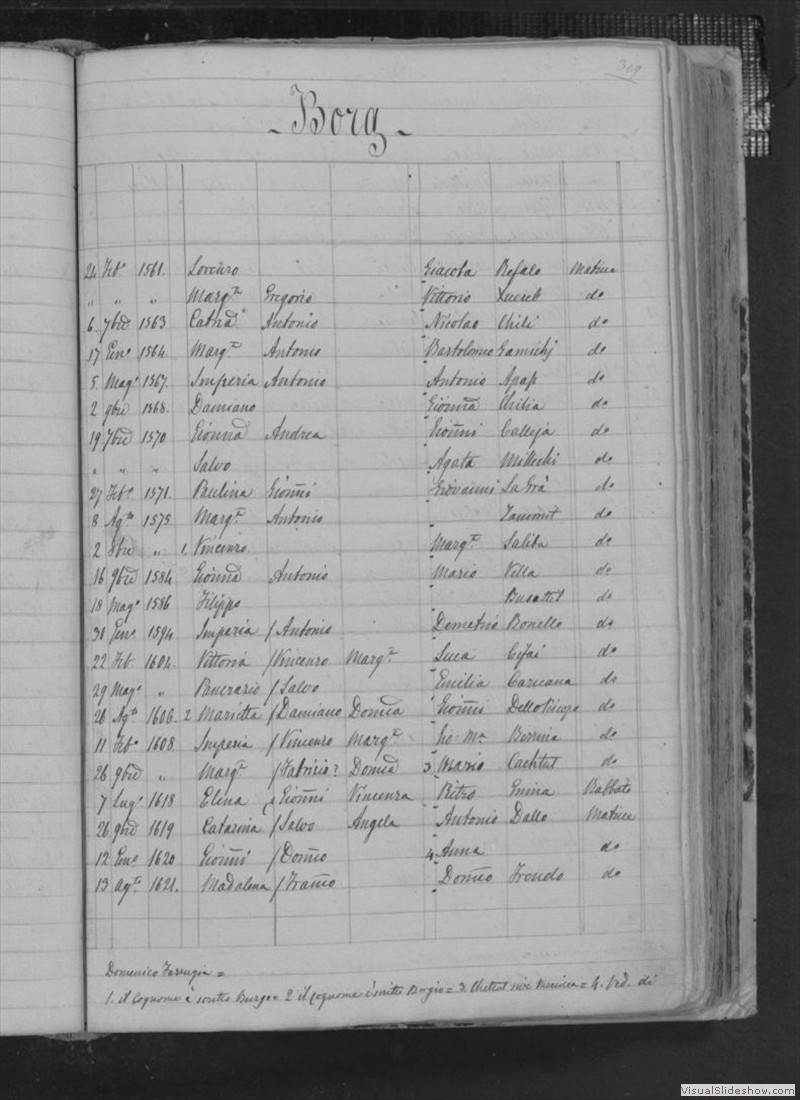 309
- Borg -
24 Feb° 1561. Lorenzo Giacoba Refalo Matrice
" " " Marg.ta Gregorio Vittorio Xuereb do
6 7bre 1563 Catna Antonio Nicolao Chili do
17 Enn° 1564. Marg.ta Antonio Bartolomeo do
5 Mag° 1567. Imperia Antonio Antonio Apap do
2 9bre 1568. Damiano Gionna Chilia do
19 7bre 1570 Gionna Andrea Gionni Calleja do
" " " Salvo Agata Millechi do
27 Feb° 1571. Paulina Gionni Giovanni La Grà do
8 Ag.to 1575 Marg.ta Antonio Zammit do
2 8bre " 1. Vincenzo Marg.ta Saliba do
16 9bre 1584 Gionna Antonio Mario Vella do
18 Mag° 1586 Filippo Busuttil do
30 Enn° 1594 Imperia / Antonio Demetrio Bonello do
22 Feb 1604. Vittoria / Vincenzo Marg.ta Luca Cifai do
29 Mag° " Pancrazio / Salvo Emilia Caruana do
26 Ag.to 1606. 2 Marietta / Damiano Domca Gionni do
11 Feb° 1608. Imperia / Vincenzo Marg.ta Gio: Ma Bonnia do
26 9bre " Marg.ta / Fabrizio? Domca 3 Mario do
7 Lug° 1618 Elena / Gionni Vincenza Petro Rabbato
26 9bre 1619 Catarina / Salvo Angela Antonio Dallo Matrice
12 Enn° 1620 Gionni / Domco 4. Anna do
13 Ag.to 1621. Madalena / Franco Domco Frendo do
Domenico Farrugia =
1. il Cognome è scritto Burgo = 2 il Cognome è scritto Borgio = 3. = 4. Ved. di
VisualSlideshow.com